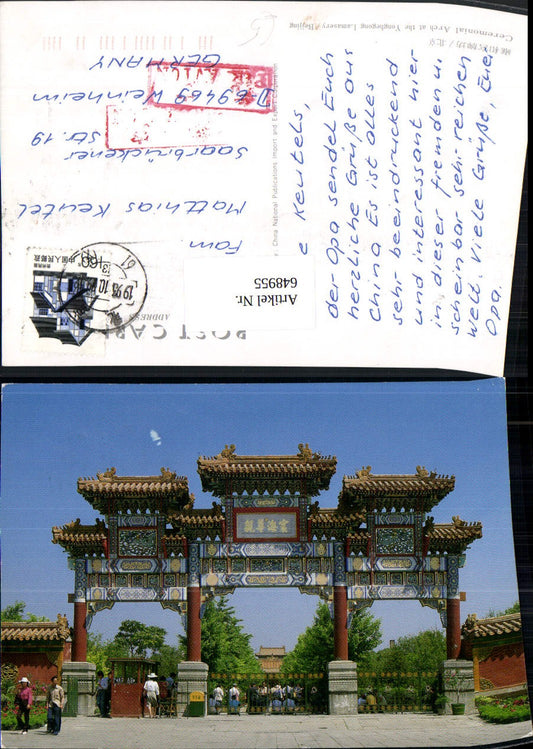 雍和宫牌坊/北京
Ceremonial Arch at the Yonghegong Lamasery/Beijing
e Keutels,
der Opa sendet Euch
herzliche Grüße aus
China Es ist alles
sehr beeindruckend
und interessant hier
in dieser fremden u.
scheinbar sehr reichen
Welt. Viele Grüße, Euer
Opa.
China National Publications Import and Export Corporation
Artikel Nr.
648955
POST CAR
ADDRESS
中国人民邮政
160
Fam
Matthias Keutel
Saarbrückener
Str. 19
D-69469 Weinheim
GERMANY